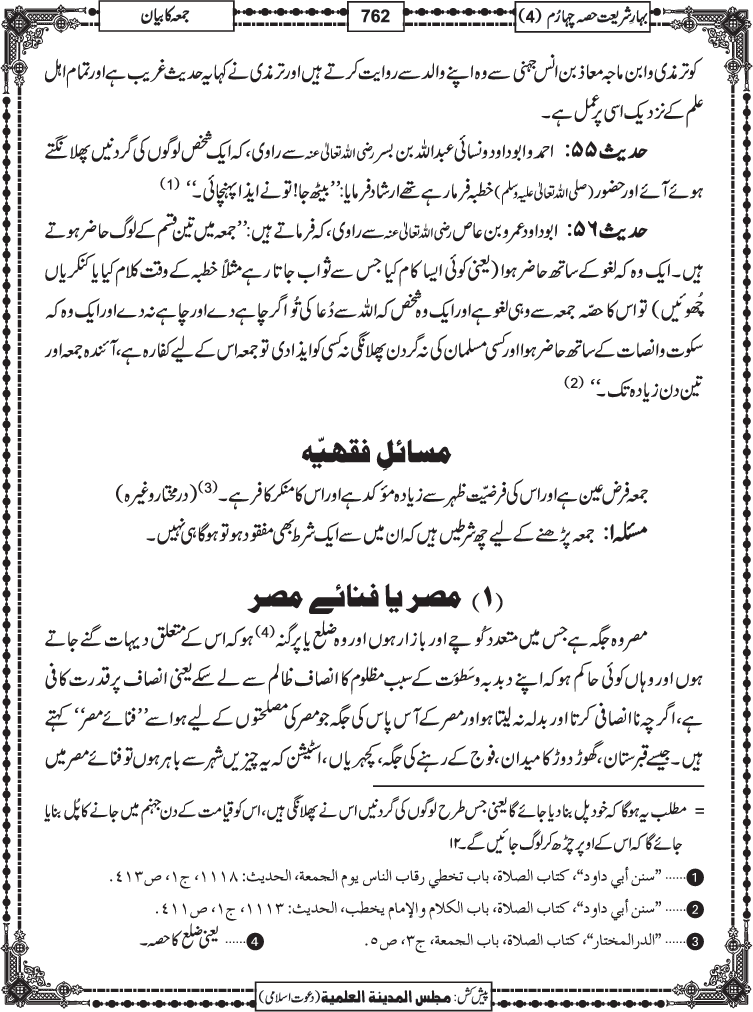 بہارِ شریعت حصہ چہارم (4)
762
جمعہ کا بیان
کو ترمذی و ابن ماجہ معاذ بن انس جہنی سے وہ اپنے والد سے روایت کرتے ہیں اور ترمذی نے کہا یہ حدیث غریب ہے اور تمام اہل
علم کے نزدیک اسی پر عمل ہے۔
حدیث ۵۵: احمد و ابو داود و نسائی عبداللہ بن بسر رضی اللہ تعالیٰ عنہ سے راوی، کہ ایک شخص لوگوں کی گردنیں پھلانگتے
ہوئے آئے اور حضور (صلی اللہ تعالیٰ علیہ وسلم) خطبہ فرما رہے تھے ارشاد فرمایا: ’’بیٹھ جا! تو نے ایذا پہنچائی۔‘‘ (1)
حدیث ۵۶: ابو داود عمرو بن عاص رضی اللہ تعالیٰ عنہ سے راوی، کہ فرماتے ہیں: ’’جمعہ میں تین قسم کے لوگ حاضر ہوتے
ہیں۔ ایک وہ کہ لغو کے ساتھ حاضر ہوا (یعنی کوئی ایسا کام کیا جس سے ثواب جاتا رہے مثلاً خطبہ کے وقت کلام کیا یا کنکریاں
چُھوئیں) تو اس کا حصّہ جمعہ سے وہی لغو ہے اور ایک وہ شخص کہ اللہ سے دُعا کی تُو اگر چاہے دے اور چاہے نہ دے اور ایک وہ کہ
سکوت و انصات کے ساتھ حاضر ہوا اور کسی مسلمان کی نہ گردن پھلانگی نہ کسی کو ایذا دی تو جمعہ اس کے لیے کفارہ ہے، آئندہ جمعہ اور
تین دن زیادہ تک۔‘‘ (2)
مسائلِ فقہیّہ
جمعہ فرض عین ہے اور اس کی فرضیّت ظہر سے زیادہ مؤکد ہے اور اس کا منکر کافر ہے۔(3) (درمختار وغیرہ)
مسئلہ ۱: جمعہ پڑھنے کے لیے چھ شرطیں ہیں کہ ان میں سے ایک شرط بھی مفقود ہو تو ہوگا ہی نہیں۔
(۱) مصر یا فنائے مصر
مصر وہ جگہ ہے جس میں متعدد کُوچے اور بازار ہوں اور وہ ضلع یا پرگنہ (4) ہو کہ اس کے متعلق دیہات گنے جاتے
ہوں اور وہاں کوئی حاکم ہو کہ اپنے دبدبہ و سَطوَت کے سبب مظلوم کا انصاف ظالم سے لے سکے یعنی انصاف پر قدرت کافی
ہے، اگرچہ ناانصافی کرتا اور بدلہ نہ لیتا ہو اور مصر کے آس پاس کی جگہ جو مصر کی مصلحتوں کے لیے ہو اسے ’’فنائے مصر‘‘ کہتے
ہیں۔ جیسے قبرستان، گھوڑ دوڑ کا میدان، فوج کے رہنے کی جگہ، کچہریاں، اسٹیشن کہ یہ چیزیں شہر سے باہر ہوں تو فنائے مصر میں
= مطلب یہ ہوگا کہ خود پل بنا دیا جائے گا یعنی جس طرح لوگوں کی گردنیں اس نے پھلانگی ہیں، اس کو قیامت کے دن جہنم میں جانے کا پُل بنایا
جائے گا کہ اس کے اوپر چڑھ کر لوگ جائیں گے۔ ۱۲
1 ...... ”سنن أبي داود“، كتاب الصلاة، باب تخطي رقاب الناس يوم الجمعة، الحديث: ١١١٨، ج١، ص٤١٣.
2 ...... ”سنن أبي داود“، كتاب الصلاة، باب الكلام والإمام يخطب، الحديث: ١١١٣، ج١، ص٤١١.
3 ...... ”الدرالمختار“، كتاب الصلاة، باب الجمعة، ج٣، ص٥. 4 ...... یعنی ضلع کا حصہ۔
پیش کش: مجلس المدينة العلمية (دعوتِ اسلامی)